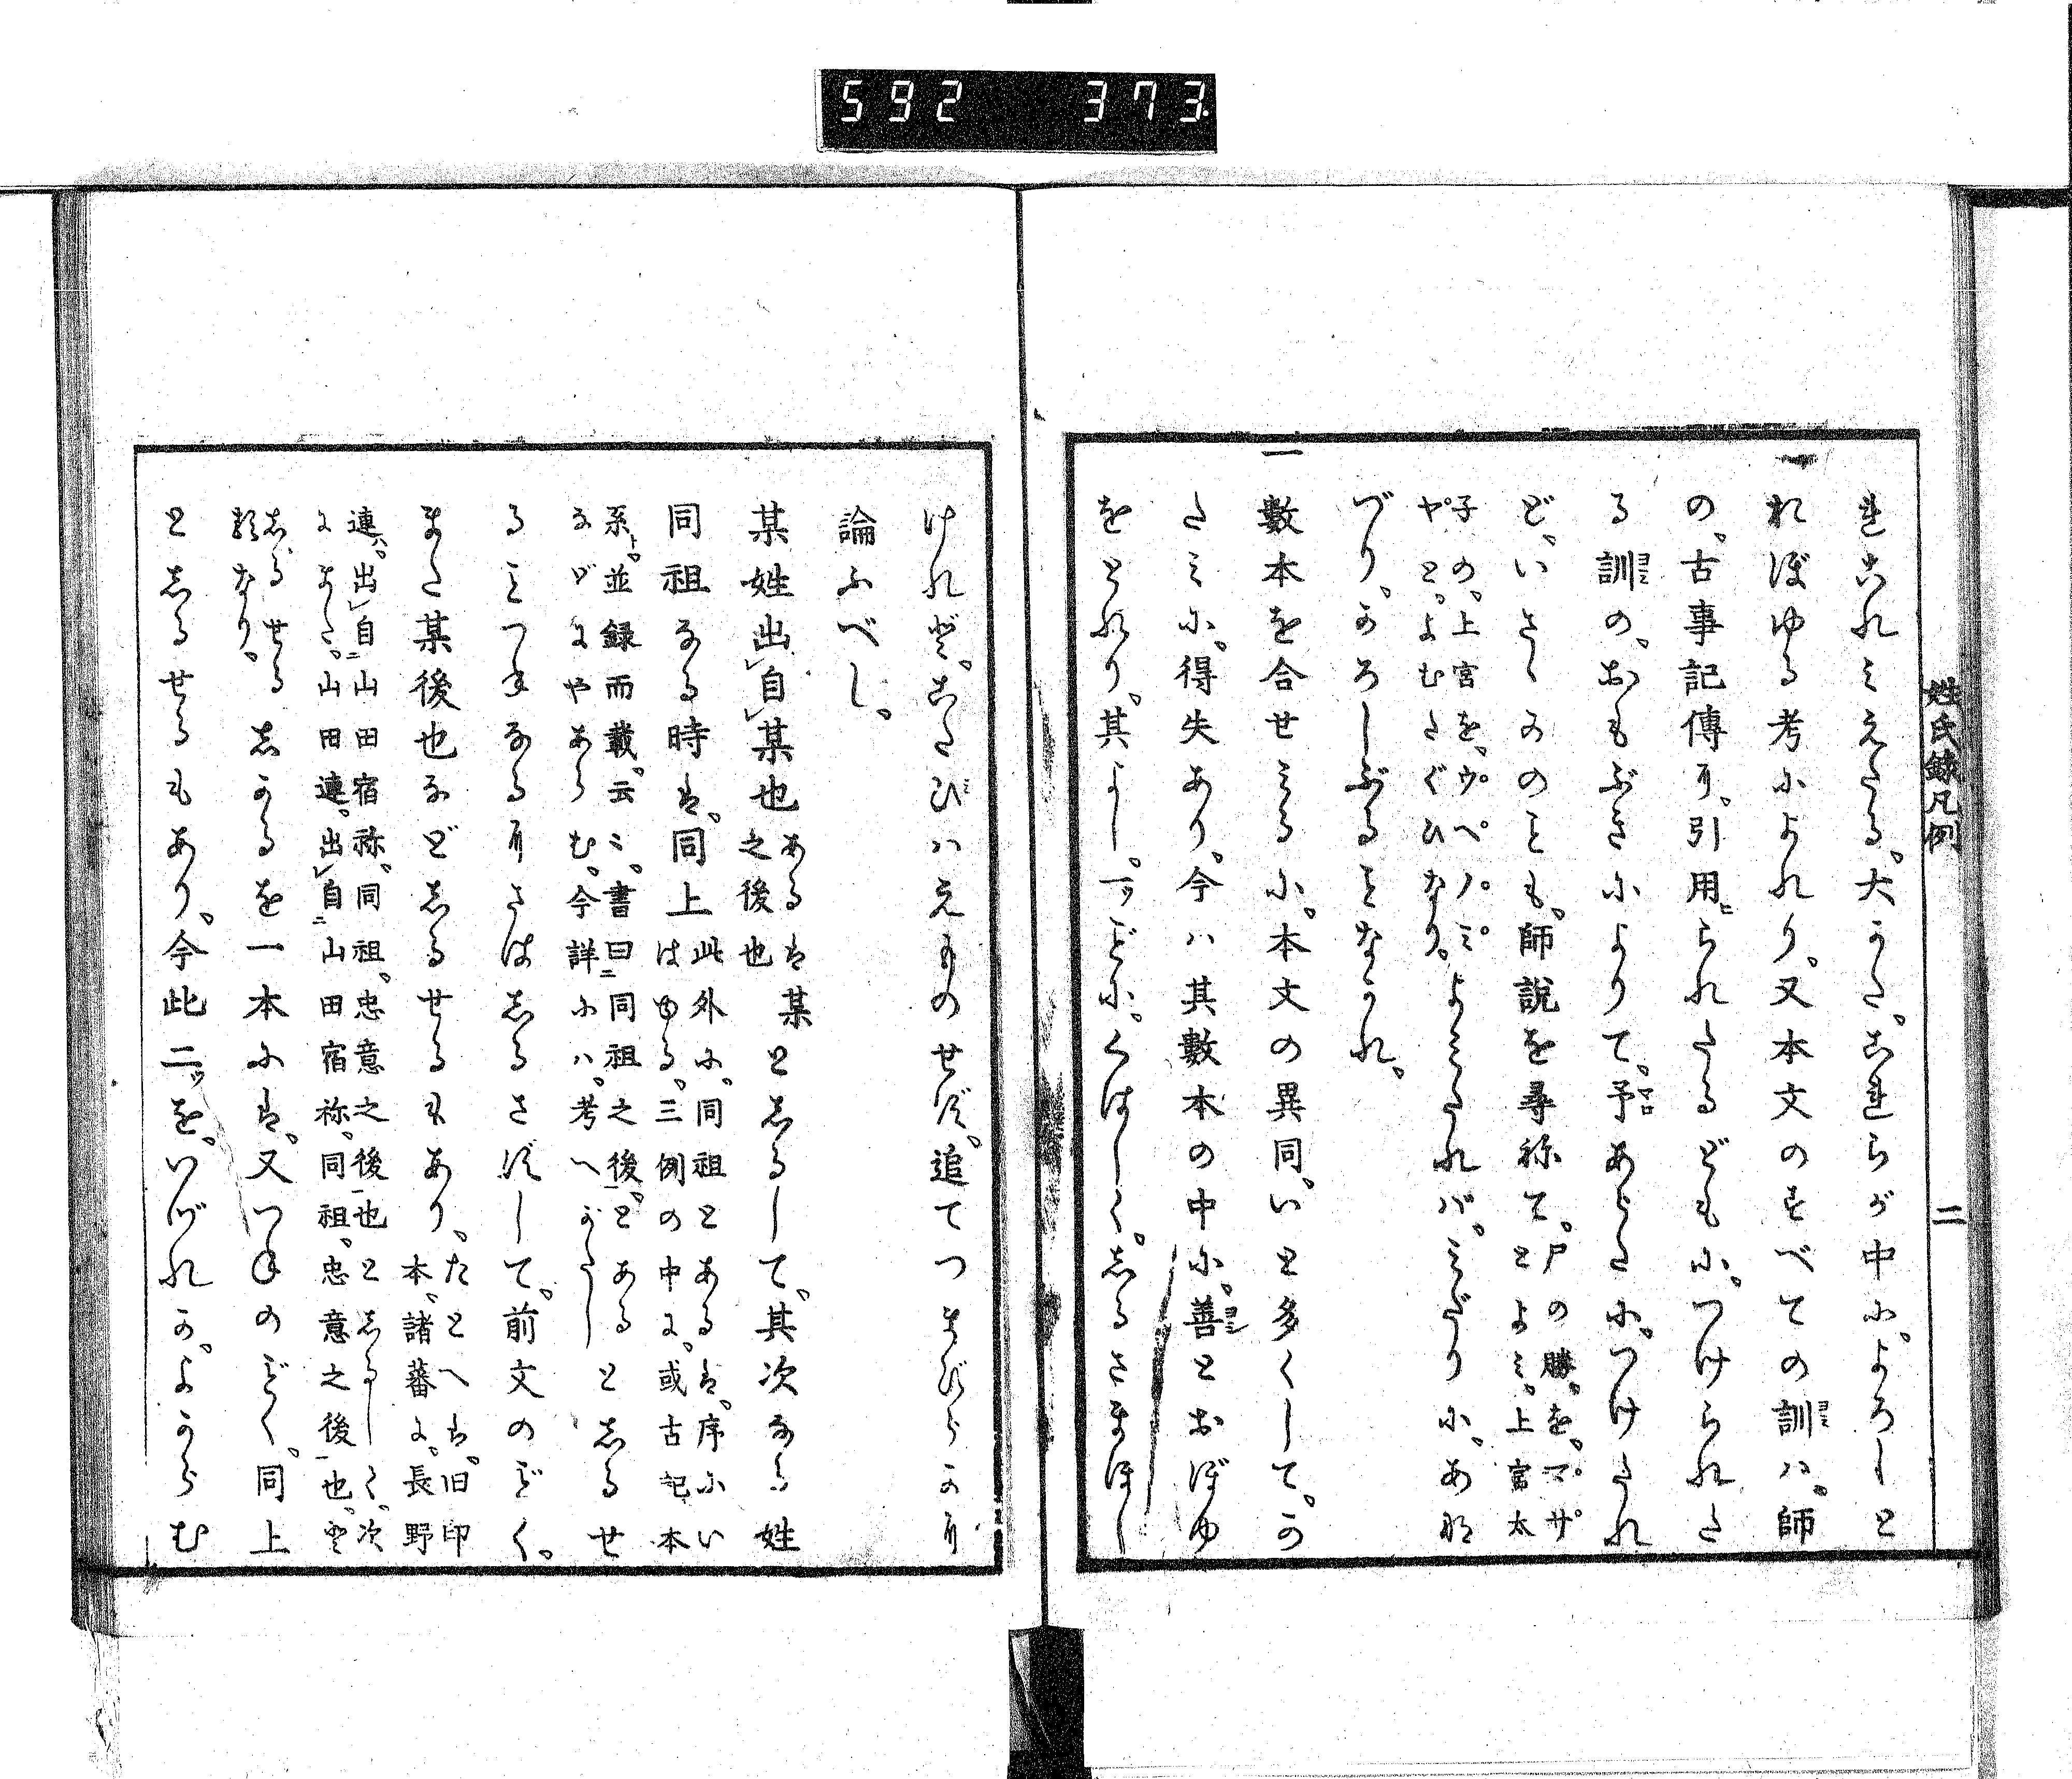 592 373
姓氏録凡例
二
まこれミえたる。大かた。これらが中に。よろしと
おぼゆる考によれり。又本文のすべての訓ヨミハ。師
の。古事記傳に。引用ニられたるどもに。つけられた
る訓ヨミの。おもぶきによりて。予マロあらたに。つけたれ
ど。いさゝかのことも。師説を尋祢て。尸の勝。を。マサ
とよミ。上宮太
子の。上宮を。ウヘノミ
ヤと。よむたぐひなり。よミたれバ。ミだりに。あな
づり。かろしぶることなかれ。
一
數本を合せミるに。本文の異同。いと多くして。か
たミに。得失あり。今ハ其數本の中に。善ヨシとおぼゆ
をとれり。其よし。一ッごとに。くはしく。しるさまほし
けれど。こたびハえものせず。追てつまびらかに
論ふべし。
某姓出自某也あるは某
之後也としるして。其次なる姓
同祖なる時は。同上此外に。同祖とあるは。序にい
はゆる。三例の中に。或古記本
系ト。並録而載。云々。書曰ニ同祖之後。とある
などにやあらむ。今詳にハ。考へがたしとしるせ
ることつねなるにさはしるさずして。前文のごとく。
また某後也などしるせるもあり。たとへば。旧印
本。諸蕃に。長野
連ハ。出自ニ山田宿祢。同祖。忠意之後也としるしく。次
にまた。山田連。出自ニ山田宿祢。同祖。忠意之後也。と
しるせる
類なり。しかるを一本には。又つねのごとく。同上
としるせるもあり。今此二ッを。いづれか。よからむ